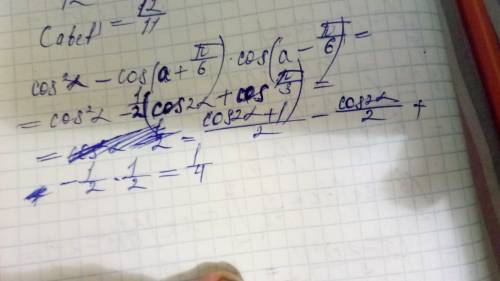 C abcf = 12/11
cos²α - cos(a + π/6) · cos(a - π/6) =
= cos²α - 1/2(cos2α + cos π/3) =
= 1/2 - (cos2α + 1)/2 - cos2α/2 +
- 1/2 · 1/2 = 1/4